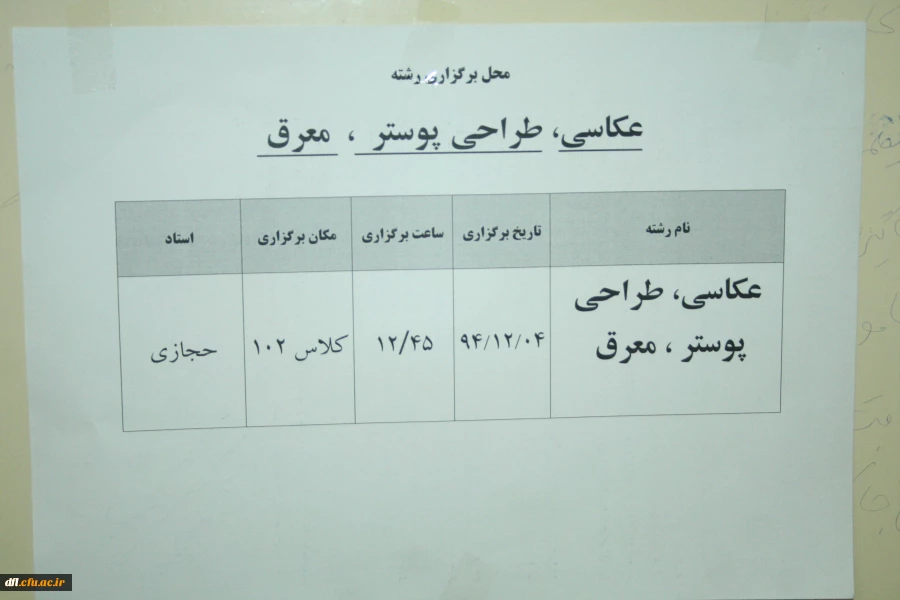 محل برگزاری رشته
عکاسی، طراحی پوستر ، معرق
نام رشته	تاریخ برگزاری	ساعت برگزاری	مکان برگزاری	استاد
عکاسی، طراحی
پوستر ، معرق
۹۴/۱۲/۰۴	۱۲/۴۵	کلاس ۱۰۲	حجازی
dfl.cfu.ac.ir